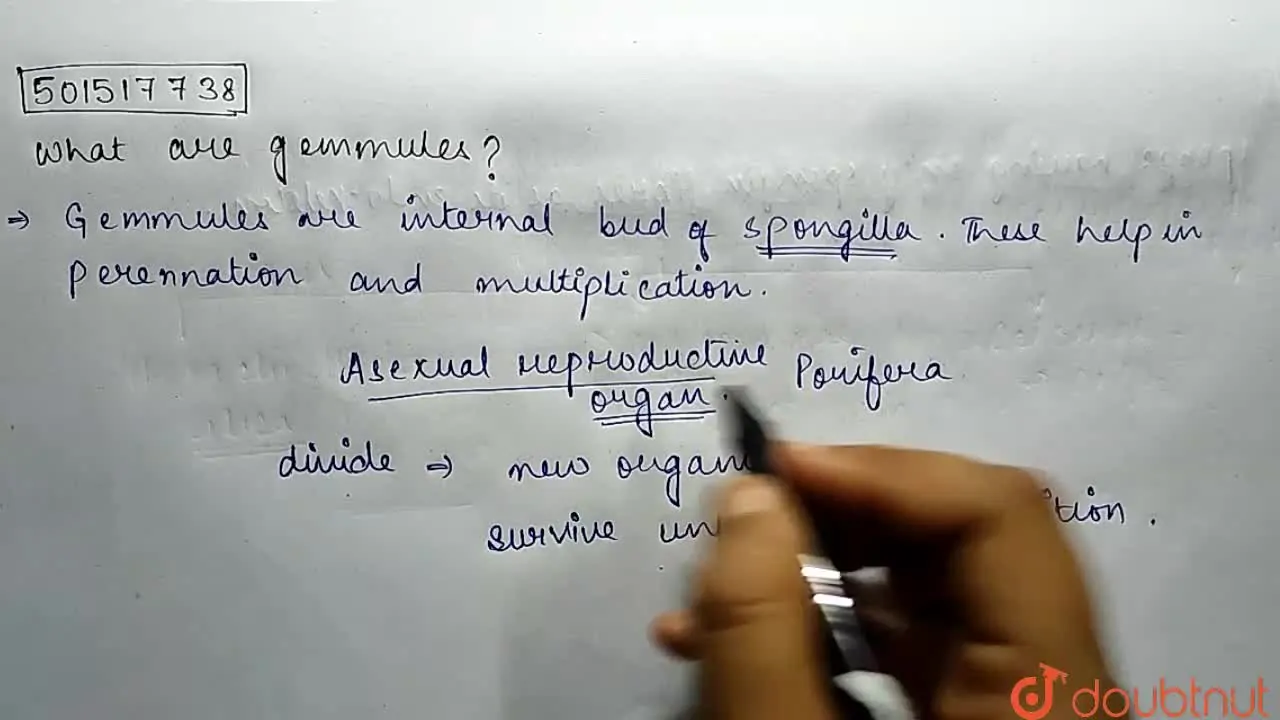 501517738
What are gemmules?
⇒ Gemmules are internal bud of spongilla. These help in
perennation and multiplication.
Asexual reproductive Porifera
organ.
divide ⇒ new
survive
doubtnut